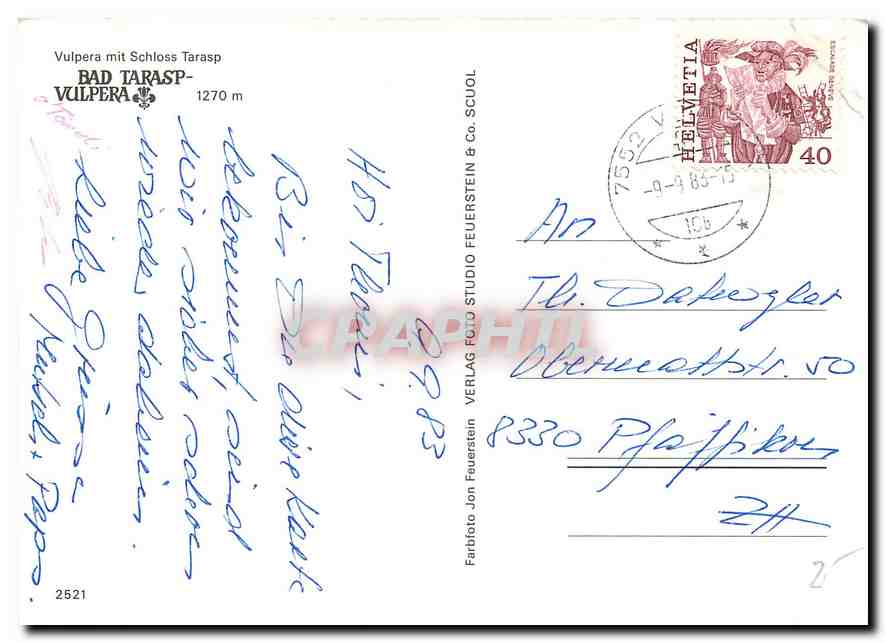 Vulpera mit Schloss Tarasp
BAD TARASP-
VULPERA 1270 m
9.9.83
Hoi Thomi,
Bis Du diese Karte
bekommst, sind
wir sicher schon
wieder daheim.
Liebe Grüsse
+ Papi.
2521
Farbfoto Jon Feuerstein VERLAG FOTO STUDIO FEUERSTEIN & Co. SCUOL
HELVETIA
ESCALADE GENÈVE
40
7552 V
-9-9.83-15
10b
An
Th. Datwyler
Obermattstr. 50
8330 Pfäffikon
ZH
CPAPHIL